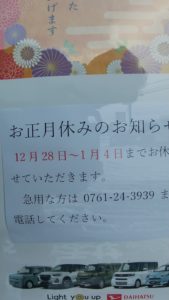 げます
た
お正月休みのお知らせ
12月28日～1月4日までお休
せていただきます。
急用な方は 0761-24-3939 ま
電話してください。
Light you up DAIHATSU